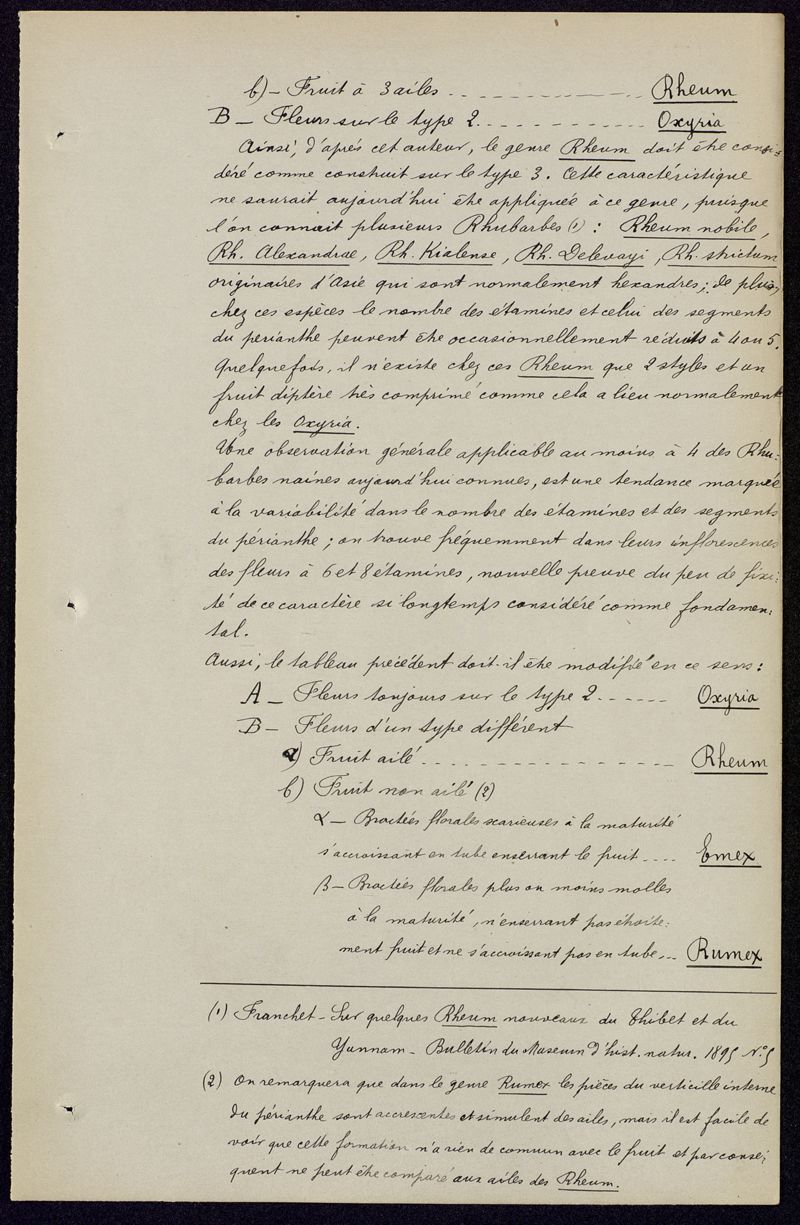 b) – Fruit à 3 ailes ------------ Rheum
B – Fleurs sur le type 2 ------------ Oxyria
Ainsi, d'après cet auteur, le genre Rheum doit être consi-
déré comme construit sur le type 3. Cette caractéristique
ne saurait aujourd'hui être appliquée à ce genre, puisque
l'on connait plusieurs Rhubarbes (1) : Rheum nobile,
Rh. Alexandrae, Rh. Kialense, Rh. Delevayi, Rh. strictum
originaires d'Asie qui sont normalement hexandres; de plus,
chez ces espèces le nombre des étamines et celui des segments
du périanthe peuvent être occasionnellement réduits à 4 ou 5.
Quelquefois, il n'existe chez ces Rheum que 2 styles et un
fruit diptère très comprimé comme cela a lieu normalement
chez les Oxyria.
Une observation générale applicable au moins à 4 des Rhu-
barbes naines aujourd'hui connues, est une tendance marquée
à la variabilité dans le nombre des étamines et des segments
du périanthe ; on trouve fréquemment dans leurs inflorescences
des fleurs à 6 et 8 étamines, nouvelle preuve du peu de fixi-
té de ce caractère si longtemps considéré comme fondamen-
tal.
Aussi, le tableau précédent doit-il être modifié en ce sens :
A – Fleurs toujours sur le type 2 ------ Oxyria
B – Fleurs d'un type différent
a) Fruit ailé ---------------- Rheum
b) Fruit non ailé (2)
α – Bractées florales scarieuses à la maturité
s'accroissant en tube enserrant le fruit ---- Emex
β – Bractées florales plus ou moins molles
à la maturité, n'enserrant pas étroite-
ment fruit et ne s'accroissant pas en tube --- Rumex
(1) Franchet – Sur quelques Rheum nouveaux du Thibet et du
Yunnam – Bulletin du Museum d'hist. natur. 1895 N° 5
(2) On remarquera que dans le genre Rumex les pièces du verticille interne
du périanthe sont accrescentes et simulent des ailes, mais il est facile de
voir que cette formation n'a rien de commun avec le fruit et par consé-
quent ne peut être comparé aux ailes des Rheum.